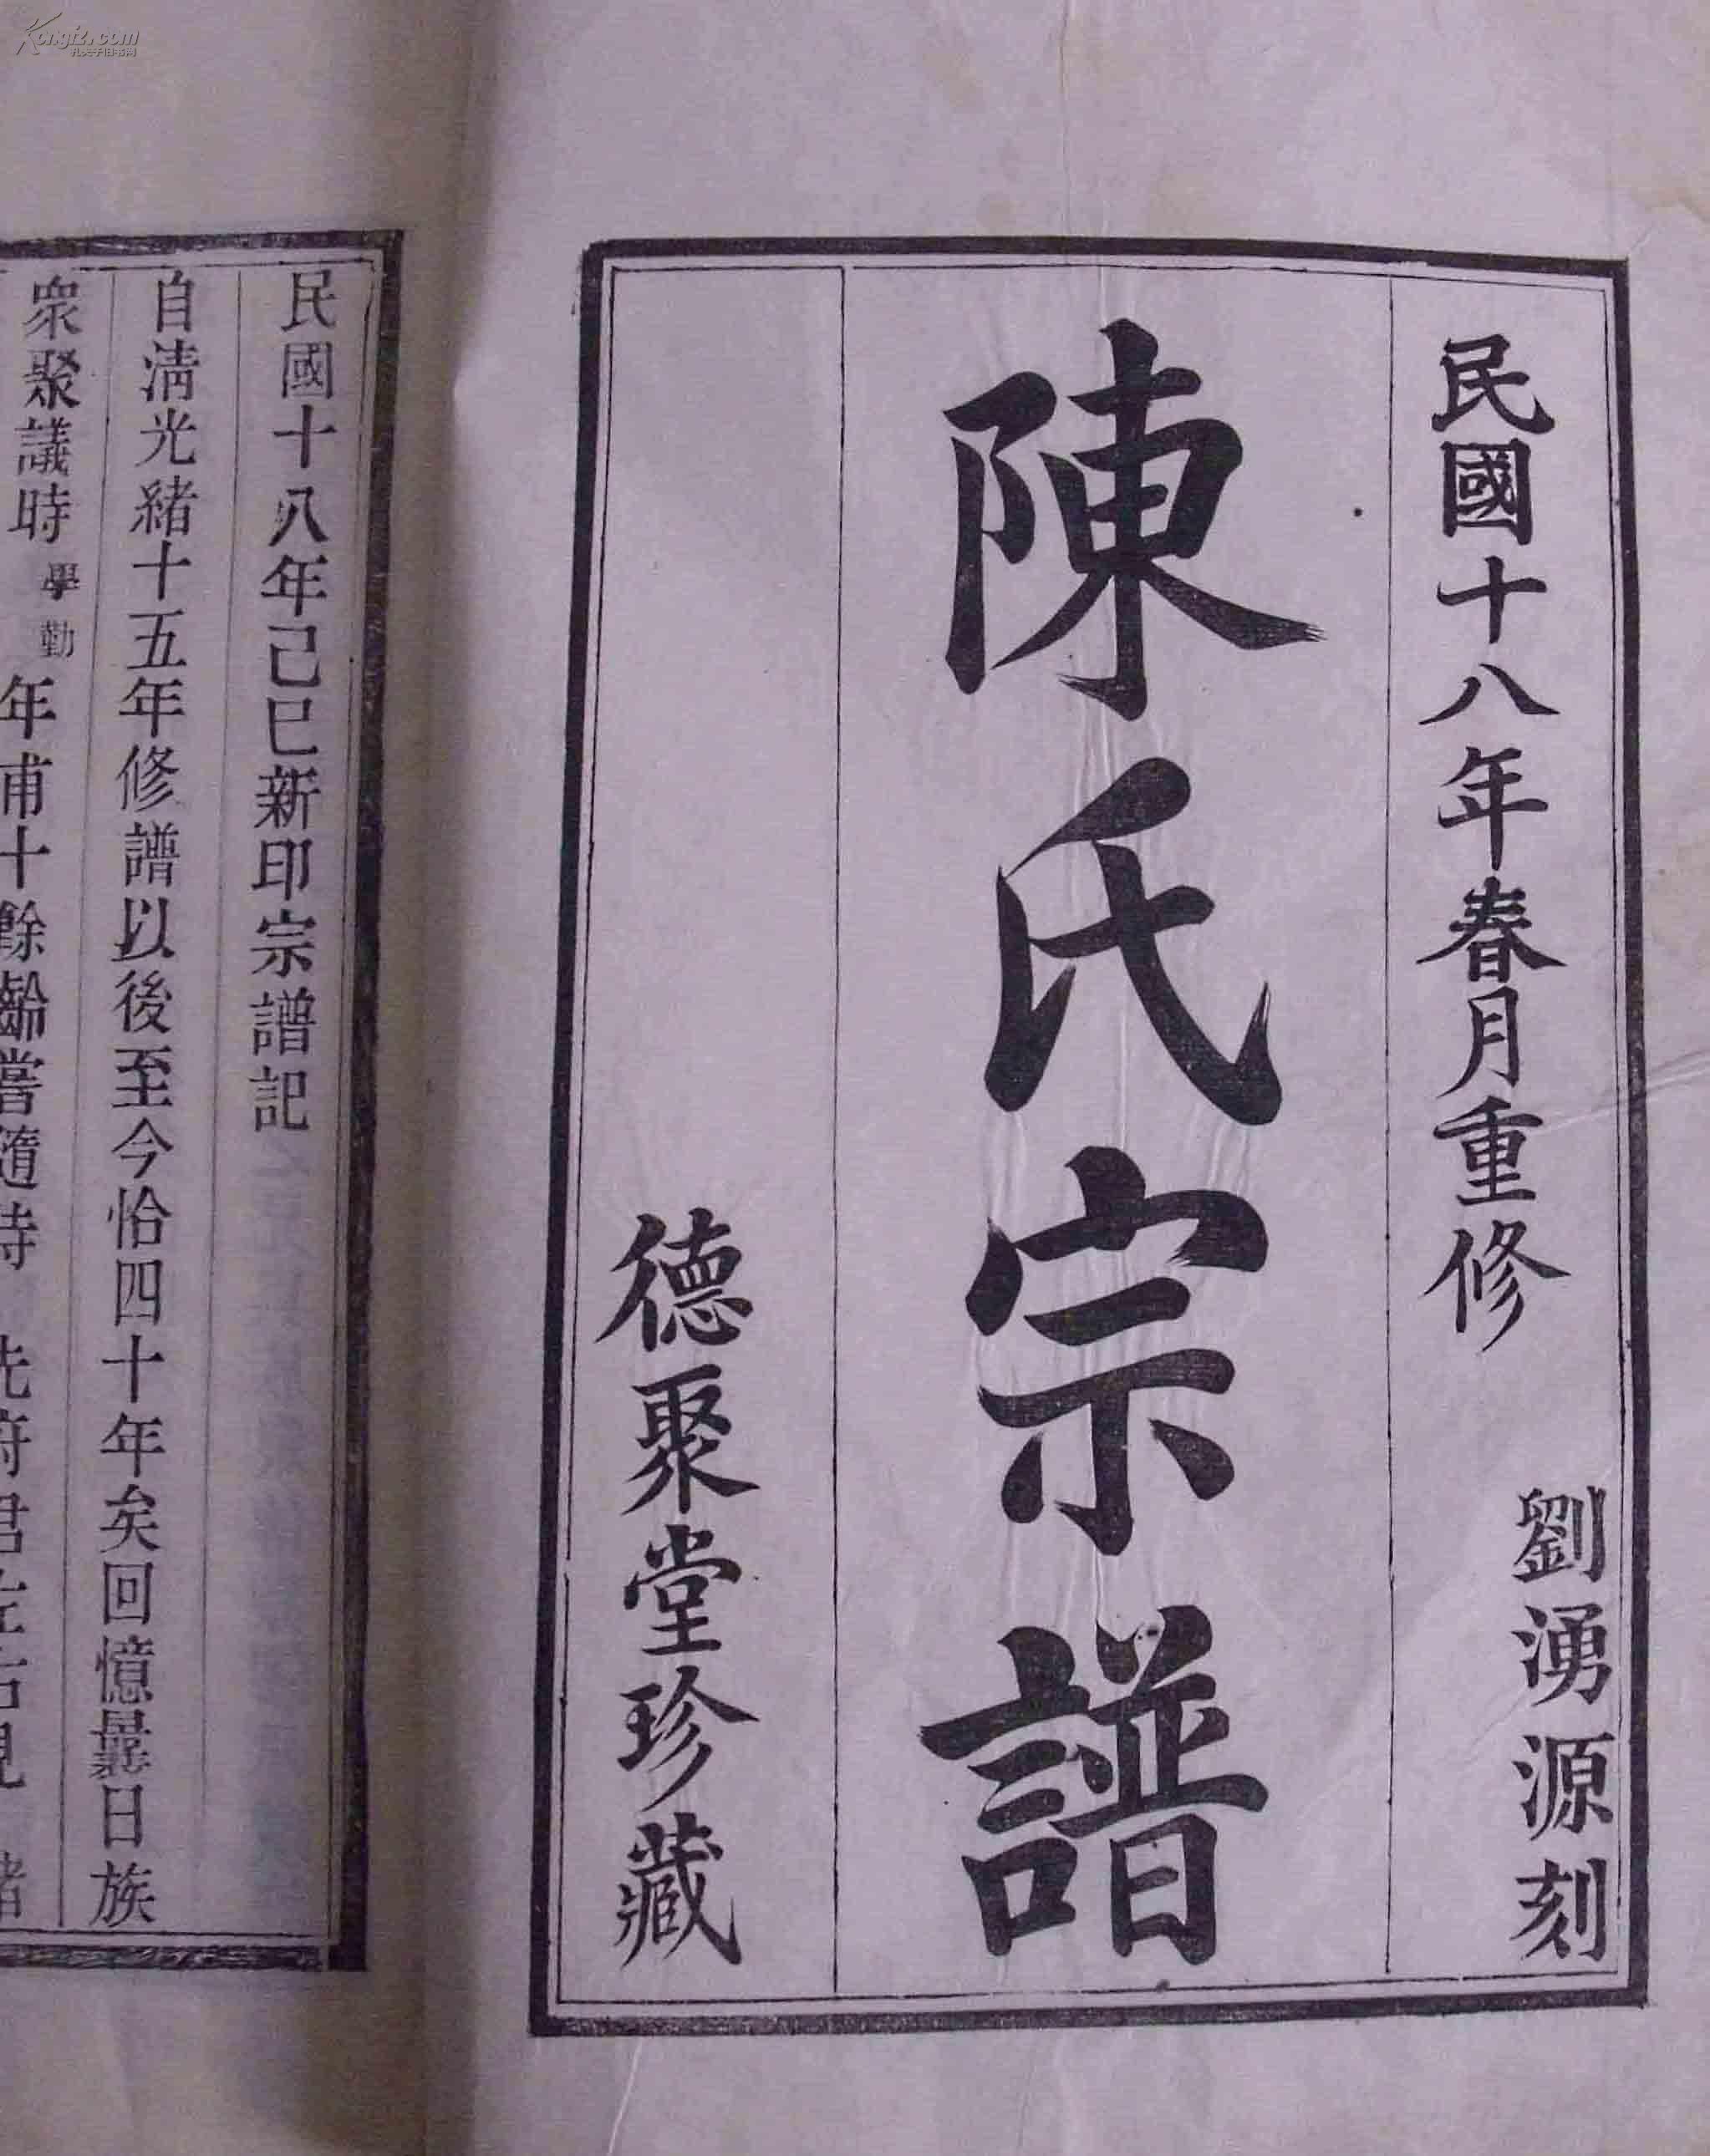 Kongfz.com
孔夫子旧书网
民國十八年春月重修
劉湧源刻
陳氏宗譜
德聚堂珍藏
民國十八年己巳新印宗譜記
自淸光緒十五年修譜以後至今恰四十年矣回憶曩日族
衆聚議時學勤年甫十餘齡嘗隨侍 先府君左右見 諸